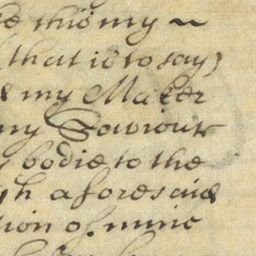 this my
that is to say
my Maker
my Saviour
bodie to the
aforesaid
tion of mine